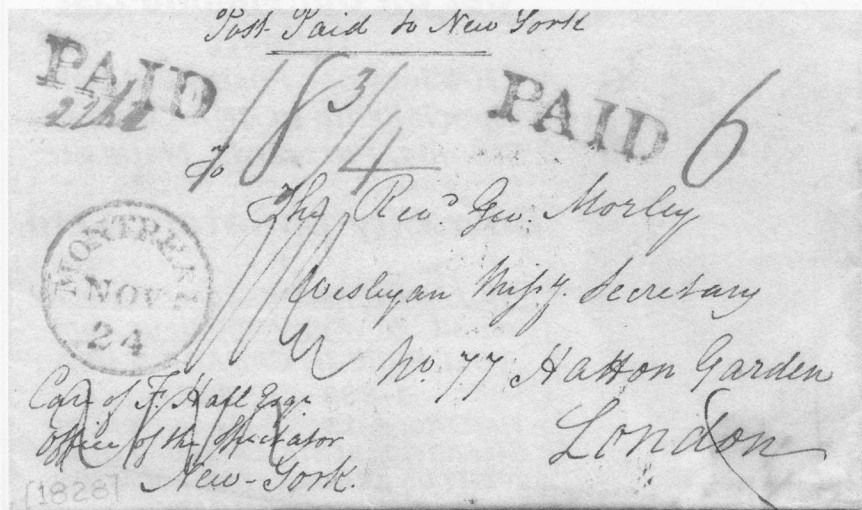 Post Paid to New York
PAID
PAID 6
18 3/4
To
The Revd Geo. Morley
Wesleyan Missy. Secretary
No. 77 Hatton Garden
London
MONTREAL
NOV
24
Care of F. Hall Esqr
Office of the Spectator
New-York.
[1828]